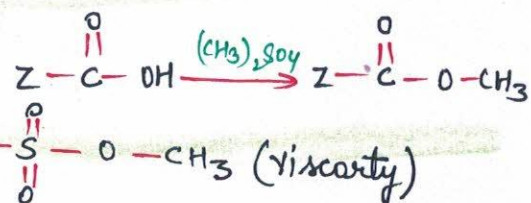 O O
Z — C — OH (CH3)2SO4 → Z — C — O — CH3
O
— S — O — CH3 (viscarty)
O